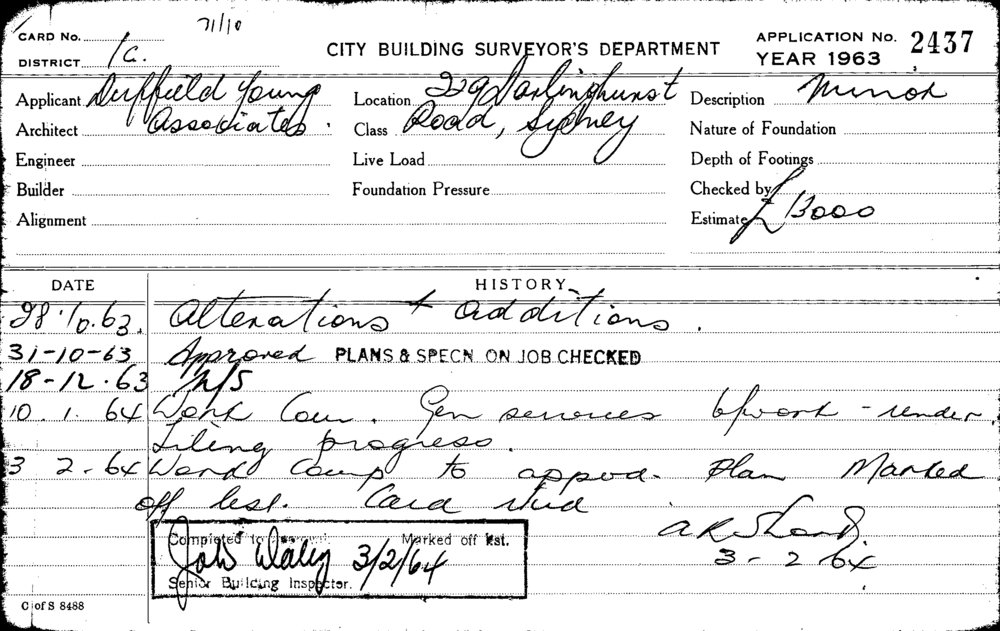 71/10
CARD No.
DISTRICT 1c.
CITY BUILDING SURVEYOR'S DEPARTMENT
APPLICATION No. 2437
YEAR 1963
Applicant Duffield Young
Architect Associates.
Engineer
Builder
Alignment
Location 229 Darlinghurst
Class Road, Sydney
Live Load
Foundation Pressure
Description Minor
Nature of Foundation
Depth of Footings
Checked by
Estimate £13000
DATE HISTORY
28.10.63. Alterations + additions.
31-10-63 Approved PLANS & SPECN. ON JOB CHECKED
18-12.63 N/S
10. 1. 64 Work Com. Gen services b/work - render,
tiling progress.
3 2-64 Work Comp to appvd. Plan Marked
off list. Card
3-2 64
Completed to approval. Marked off list.
3/2/64
Senior Building Inspector.
C of S 8488